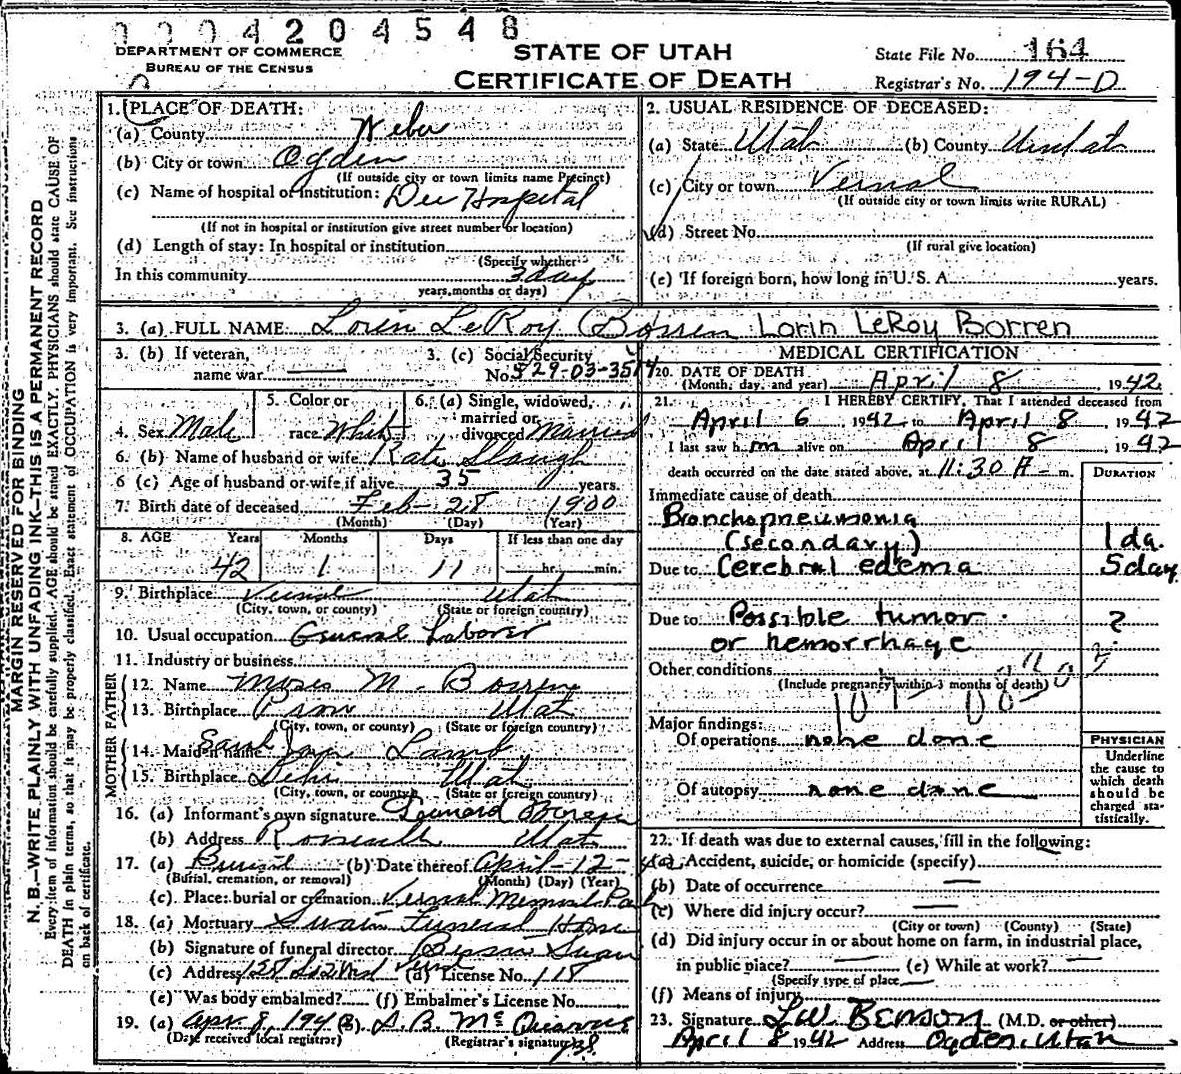 0004204548
DEPARTMENT OF COMMERCE
BUREAU OF THE CENSUS
STATE OF UTAH
CERTIFICATE OF DEATH
State File No. 164
Registrar's No. 194-D
MARGIN RESERVED FOR BINDING
N. B.—WRITE PLAINLY WITH UNFADING INK—THIS IS A PERMANENT RECORD
Every item of information should be carefully supplied. AGE should be stated EXACTLY. PHYSICIANS should state CAUSE OF
DEATH in plain terms, so that it may be properly classified. Exact statement of OCCUPATION is very important. See instructions
on back of certificate.
1. PLACE OF DEATH:
(a) County Weber
(b) City or town Ogden
(If outside city or town limits name Precinct)
(c) Name of hospital or institution: Dee Hospital
(If not in hospital or institution give street number or location)
(d) Length of stay: In hospital or institution
(Specify whether
In this community 3 days
years, months or days)
2. USUAL RESIDENCE OF DECEASED:
(a) State Utah (b) County Uintah
(c) City or town Vernal
(If outside city or town limits write RURAL)
(d) Street No.
(If rural give location)
(e) If foreign born, how long in U. S. A. years.
3. (a) FULL NAME: Loren LeRoy Borren Lorin LeRoy Borren
3. (b) If veteran,
name war
3. (c) Social Security
No. 529-03-3514
4. Sex Male
5. Color or
race White
6. (a) Single, widowed,
married or
divorced Married
6. (b) Name of husband or wife Kate Slaugh
6 (c) Age of husband or wife if alive 35 years.
7. Birth date of deceased Feb - 28 1900
(Month) (Day) (Year)
8. AGE Years Months Days If less than one day
42 1 11 hr. min.
9. Birthplace Vernal Utah
(City, town, or county) (State or foreign country)
10. Usual occupation General Laborer
11. Industry or business
FATHER
12. Name Moses M. Borren
13. Birthplace Utah
(City, town, or county) (State or foreign country)
MOTHER
14. Maiden name Sarah Lamb
15. Birthplace Lehi Utah
(City, town, or county) (State or foreign country)
16. (a) Informant's own signature Leonard Borren
(b) Address Utah
17. (a) Burial (b) Date thereof April-12-
(Burial, cremation, or removal) (Month) (Day) (Year)
(c) Place: burial or cremation Vernal Memorial Park
18. (a) Mortuary Swain Funeral Home
(b) Signature of funeral director Swain
(c) Address (d) License No. 118
(e) Was body embalmed? (f) Embalmer's License No.
19. (a) Apr 8, 1942 (b)
(Date received local registrar) (Registrar's signature)
MEDICAL CERTIFICATION
20. DATE OF DEATH
(Month, day, and year) April 8, 1942
21. I HEREBY CERTIFY, That I attended deceased from
April 6 1942 to April 8, 1942
I last saw h m alive on April 8, 1942
death occurred on the date stated above, at 11:30 A - m.
DURATION
Immediate cause of death
Bronchopneumonia
(secondary) 1 da.
Due to Cerebral edema 5 days
Due to Possible tumor ?
or hemorrhage ?
Other conditions
(Include pregnancy within 3 months of death)
Major findings:
Of operations none done
Of autopsy none done
PHYSICIAN
Underline
the cause to
which death
should be
charged sta-
tistically.
22. If death was due to external causes, fill in the following:
(a) Accident, suicide, or homicide (specify)
(b) Date of occurrence —
(c) Where did injury occur? —
(City or town) (County) (State)
(d) Did injury occur in or about home on farm, in industrial place,
in public place? — (e) While at work? —
(Specify type of place
(f) Means of injury
23. Signature L W Benson (M.D. or other)
April 8 1942 Address Ogden, Utah